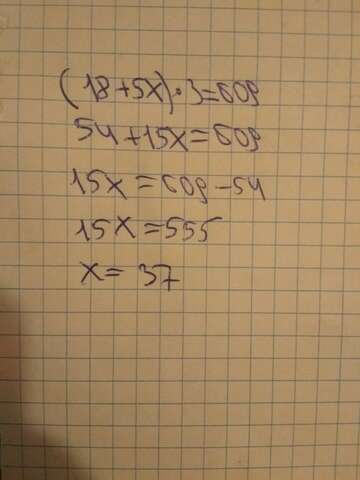 (18+5x)·3=609
54+15x=609
15x=609-54
15x=555
x=37